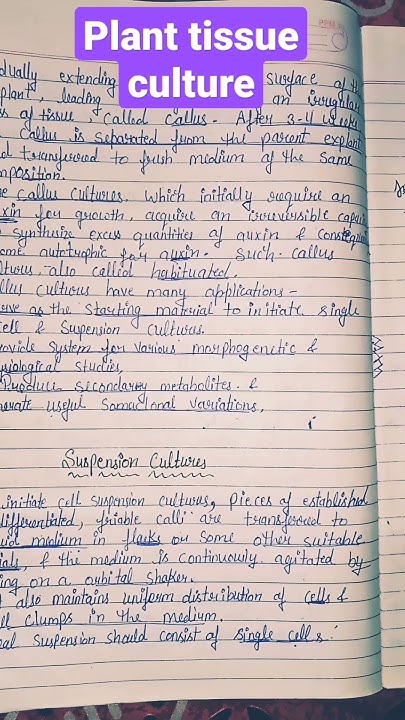 Plant tissue
culture
dually extending surface of the
plant, leading an irregular
s of tissue called callus. After 3-4 weeks
callus is separated from the parent explant
d transferred to fresh medium of the same
mposition.
e callus cultures, which initially require an
xin for growth, acquire an irreversible capaci
synthesize excess quantities of auxin & conseque
ome autotrophic for auxin. Such callus
ltures, also called habituated.
llus cultures have many applications -
rve as the starting material to initiate single
ell & Supension cultures.
rovide system for various morphogenetic &
ysiological studies,
Produce secondary metabolites. &
nerate useful Somaclonal variations,
Suspension Cultures
initiate cell suspension cultures, pieces of established
differentiated, friable calli are transferred to
uid medium in flasks or some other suitable
ials, & the medium is continously agitated by
ing on a orbital shaker.
also maintains uniform distribution of cells &
ll clumps in the medium.
eal suspension should consist of single cells.